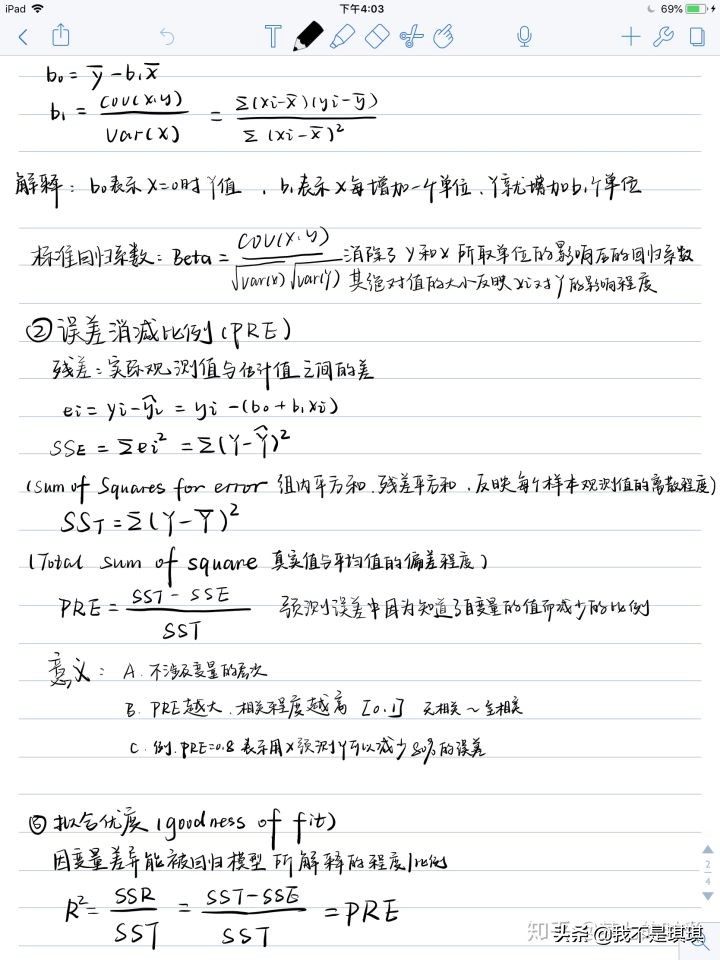 iPad 下午4:03 69%
T
b₀ = ȳ - b₁x̄
b₁ = cov(x,y) / var(x) = Σ(xi-x̄)(yi-ȳ) / Σ(xi-x̄)²
解释: b₀表示X=0时Y值, b₁表示X每增加一个单位, Y就增加b₁个单位
标准回归系数: Beta = COV(X,Y) / √var(x) √var(Y) 消除了Y和X所取单位的影响后的回归系数
其绝对值的大小反映xi对Y的影响程度
② 误差消减比例(PRE)
残差:实际观测值与估计值之间的差
ei = yi - ŷi = yi - (b₀ + b₁xi)
SSE = Σei² = Σ(Y-Ŷ)²
(Sum of Squares for error 组内平方和、残差平方和,反映每个样本观测值的离散程度)
SST = Σ(Y-Ȳ)²
(Total sum of square 真实值与平均值的偏差程度)
PRE = SST-SSE / SST 预测误差中因为知道了自变量的值而减少的比例
意义: A. 不涉及变量的层次
B. PRE越大,相关程度越高 [0,1] 无相关~全相关
C. 例. PRE=0.8 表示用X预测Y可以减少80%的误差
③ 拟合优度 (goodness of fit)
因变量差异能被回归模型所解释的程度/比例
R² = SSR / SST = SST-SSE / SST = PRE
2
4
知乎
头条@我不是琪琪